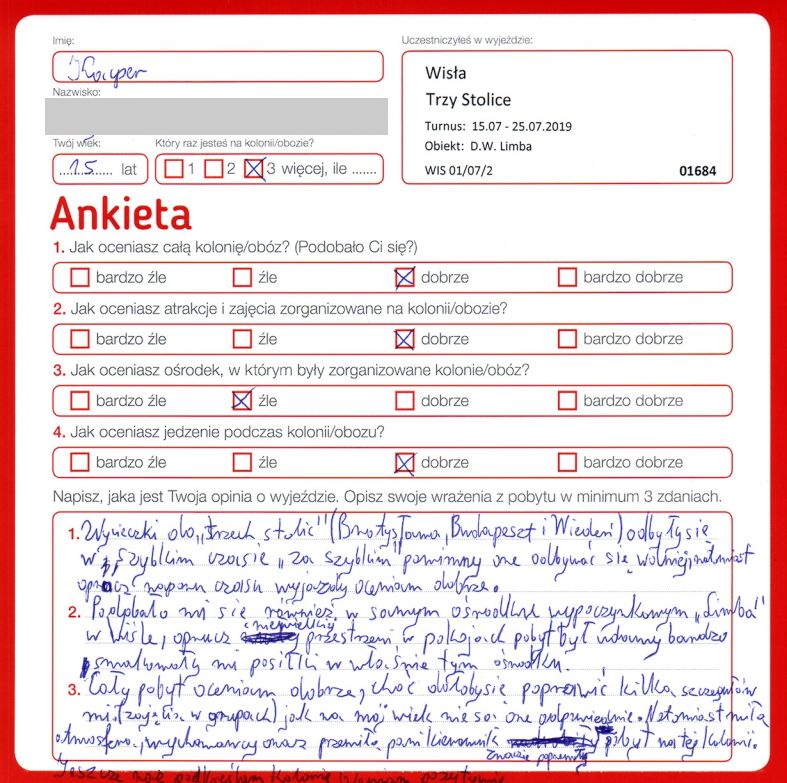 Imię:
Kacper
Uczestniczyłeś w wyjeździe:
Wisła
Trzy Stolice
Turnus: 15.07 - 25.07.2019
Obiekt: D.W. Limba
WIS 01/07/2 01684
Nazwisko:
Twój wiek:
15 lat
Który raz jesteś na kolonii/obozie?
1 2 3 więcej, ile .......
Ankieta
1. Jak oceniasz całą kolonię/obóz? (Podobało Ci się?)
bardzo źle źle dobrze bardzo dobrze
2. Jak oceniasz atrakcje i zajęcia zorganizowane na kolonii/obozie?
bardzo źle źle dobrze bardzo dobrze
3. Jak oceniasz ośrodek, w którym były zorganizowane kolonie/obóz?
bardzo źle źle dobrze bardzo dobrze
4. Jak oceniasz jedzenie podczas kolonii/obozu?
bardzo źle źle dobrze bardzo dobrze
Napisz, jaka jest Twoja opinia o wyjeździe. Opisz swoje wrażenia z pobytu w minimum 3 zdaniach.
1. Wycieczki do „trzech stolic" (Bratysława, Budapeszt i Wiedeń) odbyły się
w szybkim czasie „za szybkim" powinny one odbywać się wolniej, natomiast
oprócz naporu czasu wyjazdy oceniam dobrze.
2. Podobało mi się również w samym ośrodku wypoczynkowym „Limba"
w Wiśle, oprucz niewielkiej przestrzeni w pokojach pobyt był udany bardzo
smakowały mi posiłki w właśnie tym ośrodku.
3. Cały pobyt oceniam dobrze, choć dałobysie poprawić kilka szczegółów
m.i. (zajęcia w grupach) jak na mój wiek nie są one odpowiednie. Natomiast miła
atmosfera, wychowawcy oraz przemiła pani kierownik pobyt na tej kolonii.
znacznie
Jeszcze raz podkreślam kolonię